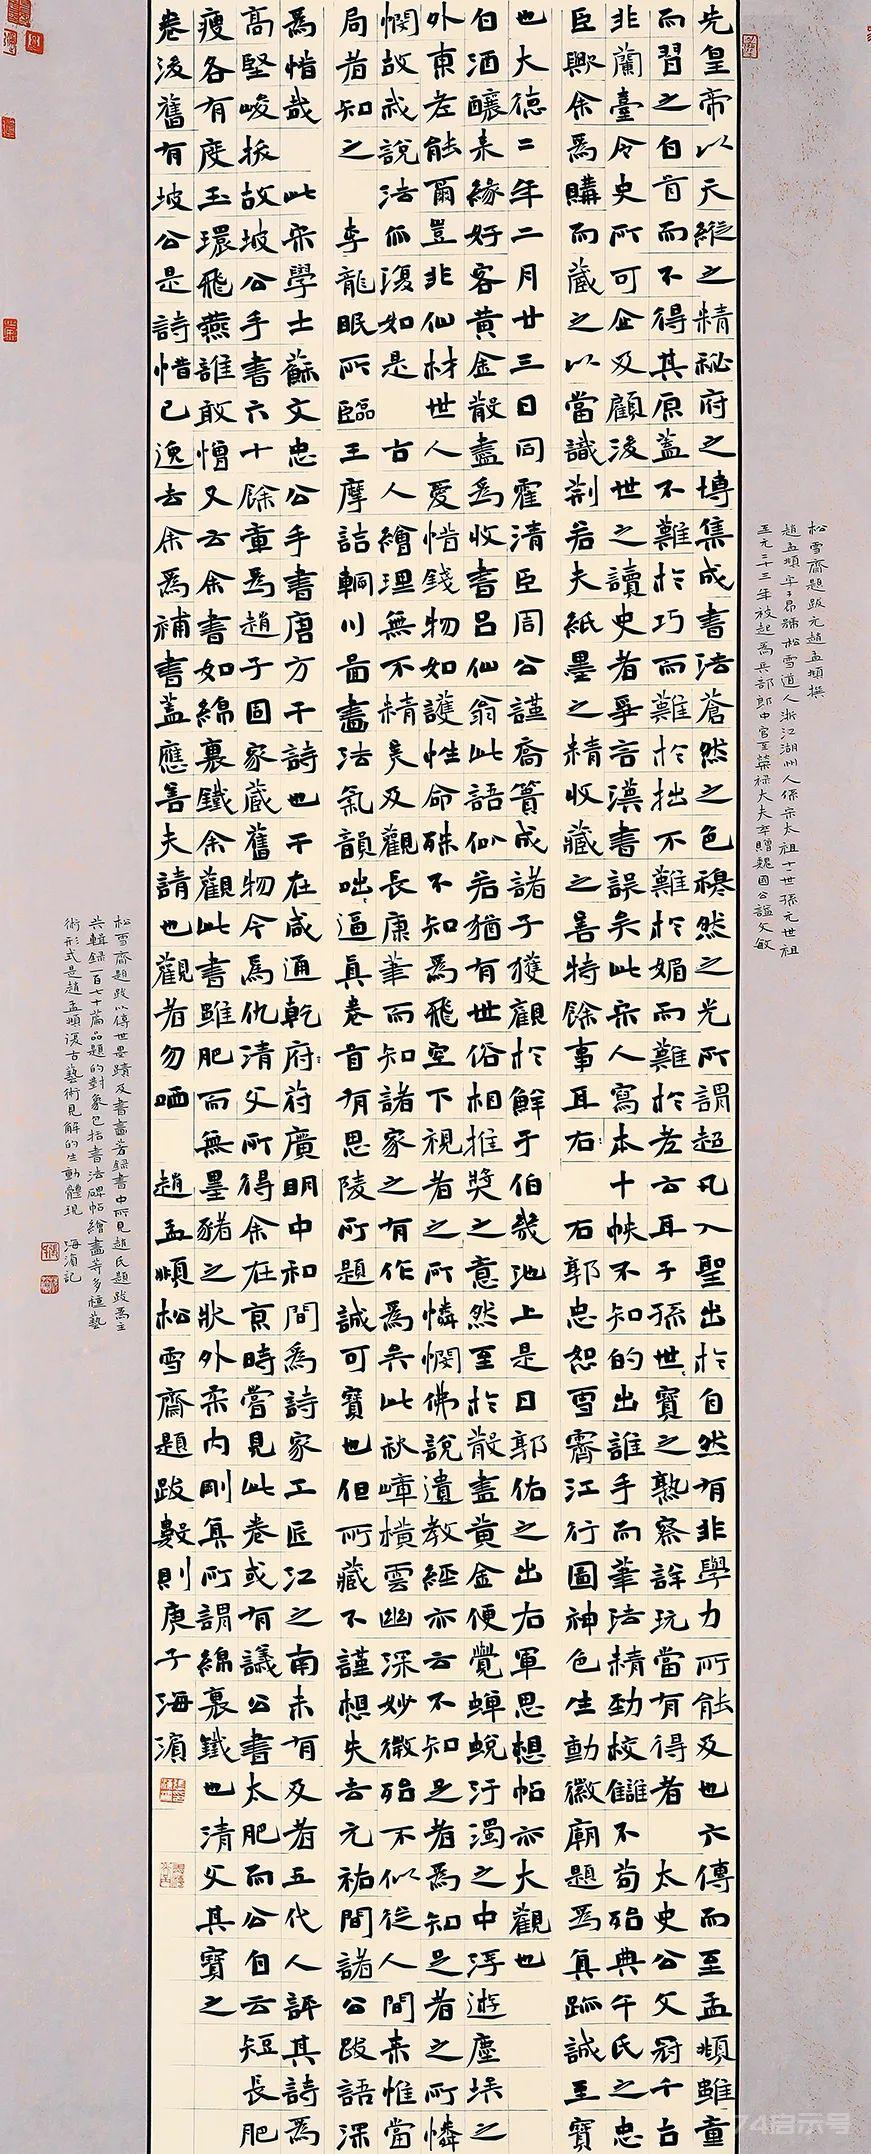 先皇帝以天縱之精秘府之博集成書法蒼然之色穆然之光所謂超凡入聖出於自然有非學力所能及也六傳而至孟頫雖童
而習之白首而不得其原蓋不難於巧而難於拙不難於媚而難於老古耳子孫世寶之熟察詳玩當有得者 太史公父冠千古
非蘭臺令史所可企及顧後世之讀史者爭言漢書誤矣此宋人寫本十帙不知的出誰手而筆法精勁校讎不苟殆典午氏之忠
臣歟余為購而藏之以當識荊若夫紙墨之精收藏之善特餘事耳右 右郭忠恕雪霽江行圖神色生動徽廟題為真跡誠至寶
也大德二年二月廿三日同霍清臣周公謹喬簣成諸子獲觀於鮮于伯幾池上是日郭佑之出右軍思想帖亦大觀也
白酒釀來緣好客黃金散盡為收書呂仙翁此語似若猶有世俗相推獎之意然至於散盡黃金便覺蟬蛻汙濁之中浮遊塵埃之
外東老能爾豈非仙材世人愛惜錢物如護性命殊不知為飛空下視者之所憐憫佛說遺教經亦云不知足者為知足者之所憐
憫故戒說法爪復如是 古人繪理無不精吳及觀長康筆而知諸家之有作為矣此秋嶂橫雲幽深妙微殆不似從人間來惟當
局者知之 李龍眠所臨王摩詰輞川啚畫法氣韻咄咄逼真卷首有思陵所題誠可寶也但所藏不謹想失去元祐間諸公跋語深
為惜哉 此宋學士蘇文忠公手書唐方干詩也干在咸通乾府符廣明中和間為詩家工匠江之南未有及者五代人評其詩為
高堅峻拔故坡公手書六十餘章為趙子固家藏舊物今為仇清父所得余在京時嘗見此卷或有議公書太肥而公自云短長肥
瘦各有度玉環飛燕誰敢憎又云余書如綿裹鐵余觀此書雖肥而無墨豬之狀外柔內剛真所謂綿裹鐵也清父其寶之
卷後舊有坡公是詩惜已逸去余為補書蓋應善夫請也觀者勿哂 趙孟頫松雪齋題跋數則庚子海濵
松雪齋題跋元趙孟頫撰
趙孟頫字子昂號松雪道人浙江湖州人係宋太祖十一世孫元世祖
至元二十三年被起為兵部郎中官至榮祿大夫卒贈魏國公諡文敏
松雪齋題跋以傳世墨蹟及書畫著錄書中所見趙氏題跋為主
共輯錄一百七十篇品題的對象包括書法碑帖繪畫等多種藝
術形式是趙孟頫復古藝術見解的生動體現 海濵記
74启示号